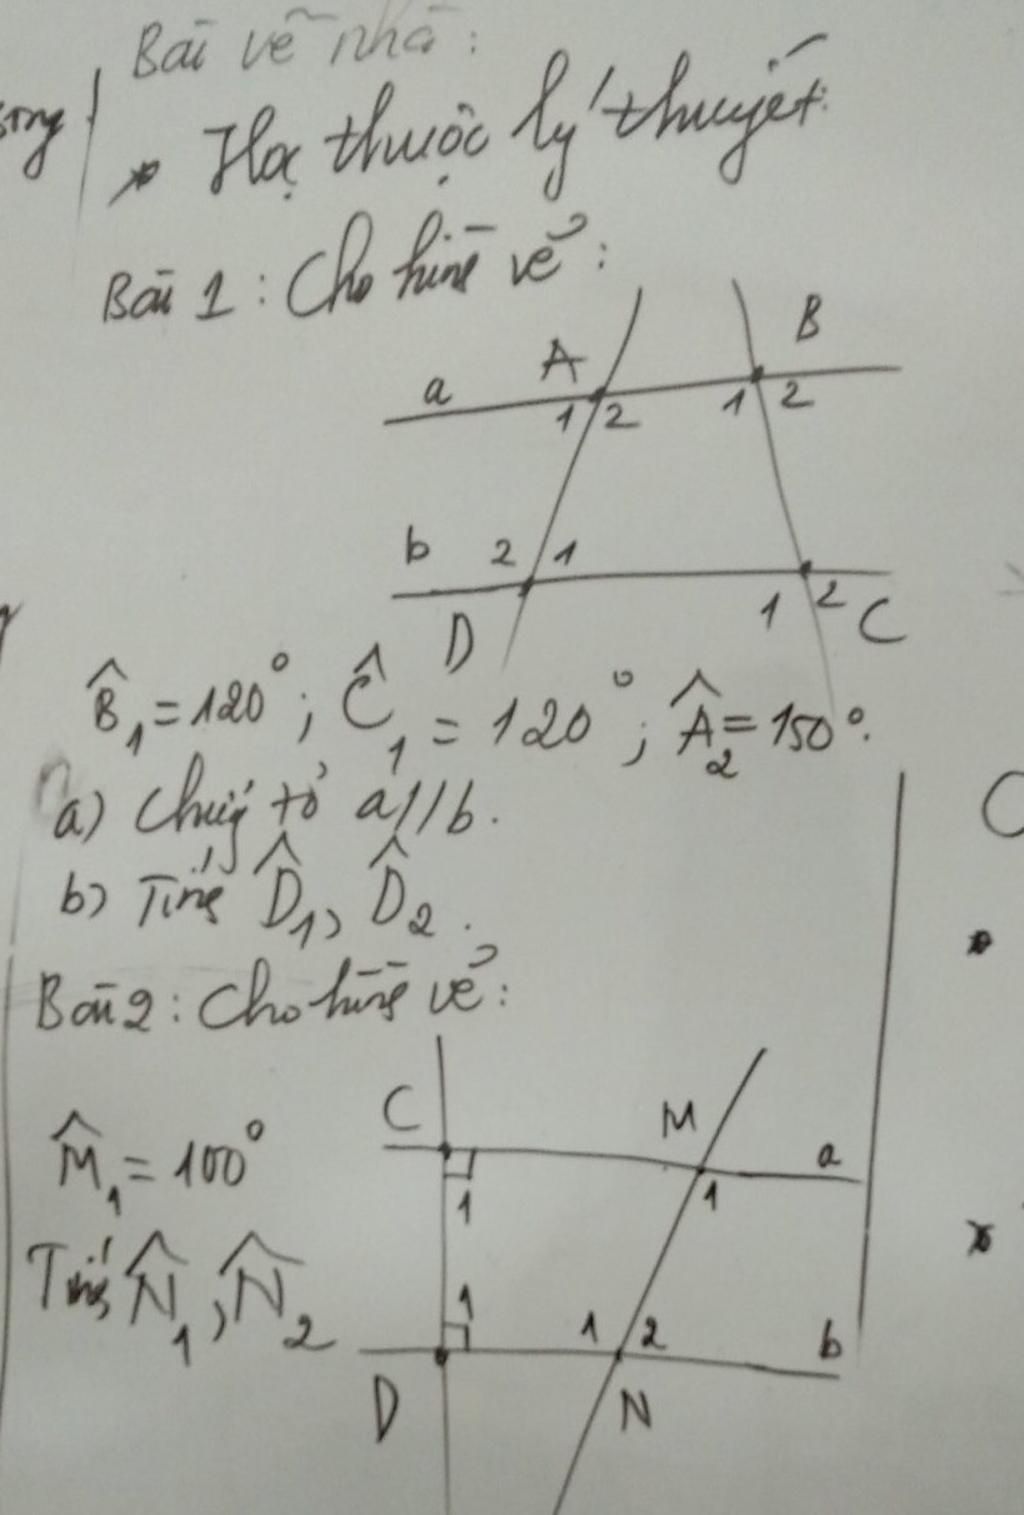 Bài về nhà:
* Học thuộc lý thuyết.
Bài 1: Cho hình vẽ:
A B
a 1 2 1 2
b 2 1
D 1 2 C
B̂₁ = 120°; Ĉ₁ = 120°; Â₂ = 150°.
a) Chứng tỏ a//b.
b) Tính D̂₁, D̂₂.
Bài 2: Cho hình vẽ:
C M a
M̂₁ = 100°
1 1
Tính N̂₁, N̂₂
1 1 2 b
D N